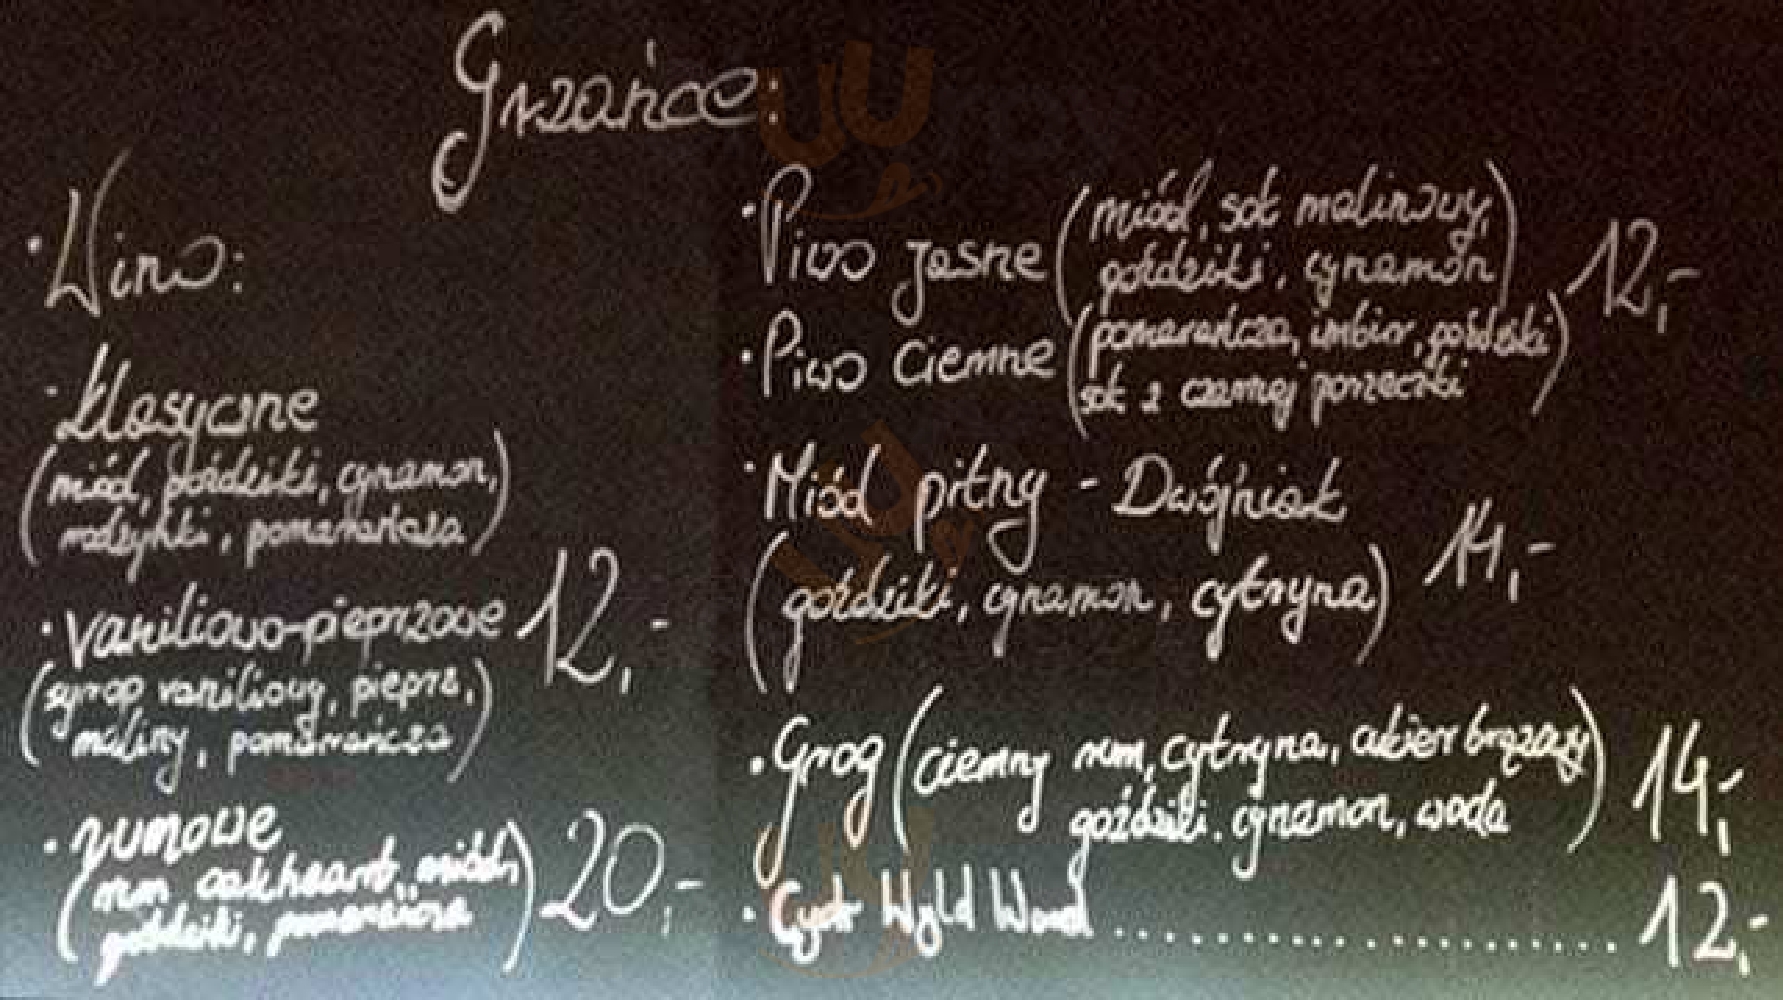 Grzańce:
· Wino:
· klasyczne
(miód, goździki, cynamon,
rodzynki, pomarańcza)
· waniliowo-pieprzowe 12,-
(syrop waniliowy, pieprz,
maliny, pomarańcza)
· rumowe 20,-
(rum oakheart, miód,
goździki, pomarańcza)
· Piwo jasne (miód, sok malinowy,
goździki, cynamon) 12,-
· Piwo ciemne (pomarańcza, imbir, goździki
sok z czarnej porzeczki)
· Miód pitny - Dwójniak
(goździki, cynamon, cytryna) 14,-
· Grog (ciemny rum, cytryna, cukier brązowy
goździki, cynamon, woda) 14,-
· Cydr Wyld Wood .................... 12,-